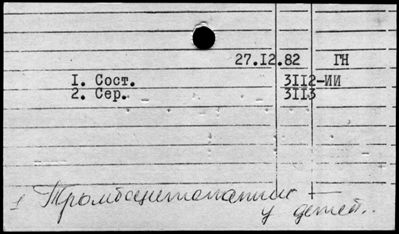 27.12.82 ГН
1. Сост. 3112-ИИ
2. Сер. 3113
Тромбоцитопатии
у детей..